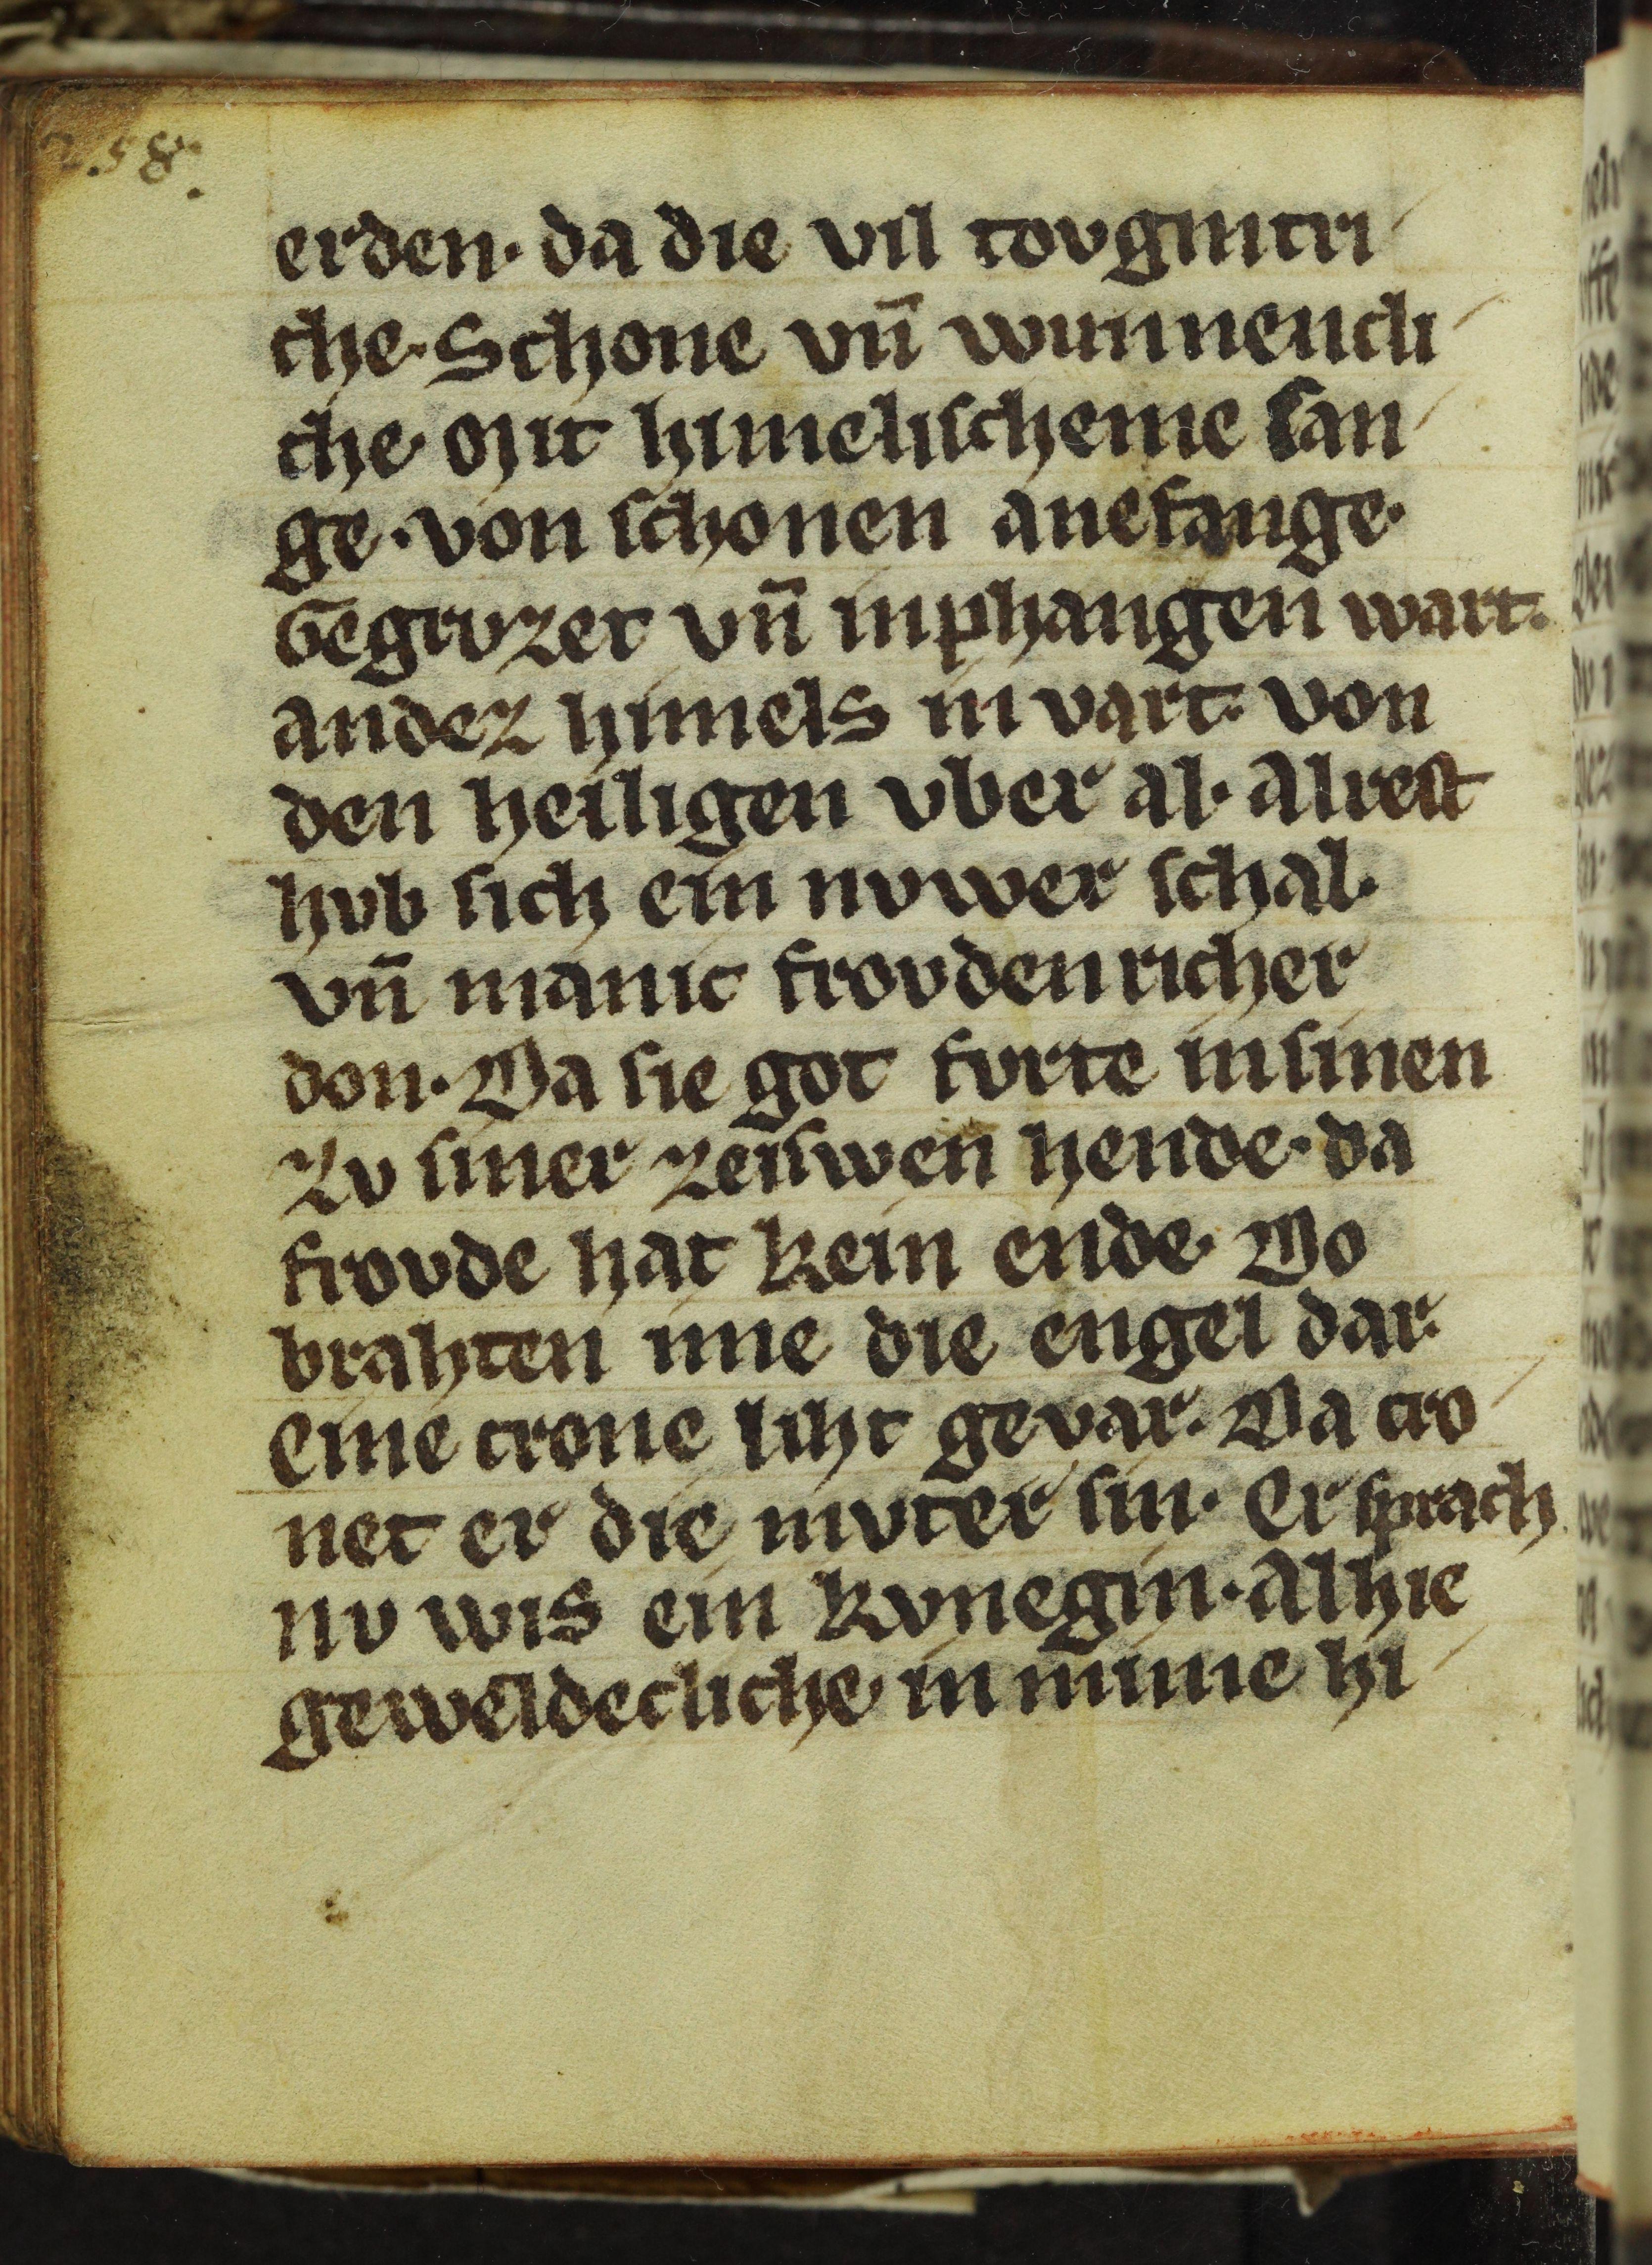 258.
erden· da die vil tovgintri
che· Schone vn̄ wunnencli
che· Mit himelischeme san
ge· von schonen anefange·
Gegrvzet vn̄ inphangen wart·
andez himels in vart· von
den heiligen vber al· Alrest
hvb sich ein nvwer schal·
vn̄ manic frovdenricher
don· Da sie got fvrte in sinen
Zv siner zeiswen hende· da
frovde hat kein ende· Do
brahten ime die engel dar·
Eine crone liht gevar· Da cro
net er die mvter sin· Er sprach
nv wis ein kvnegin· Alhie
geweldecliche in mime hi